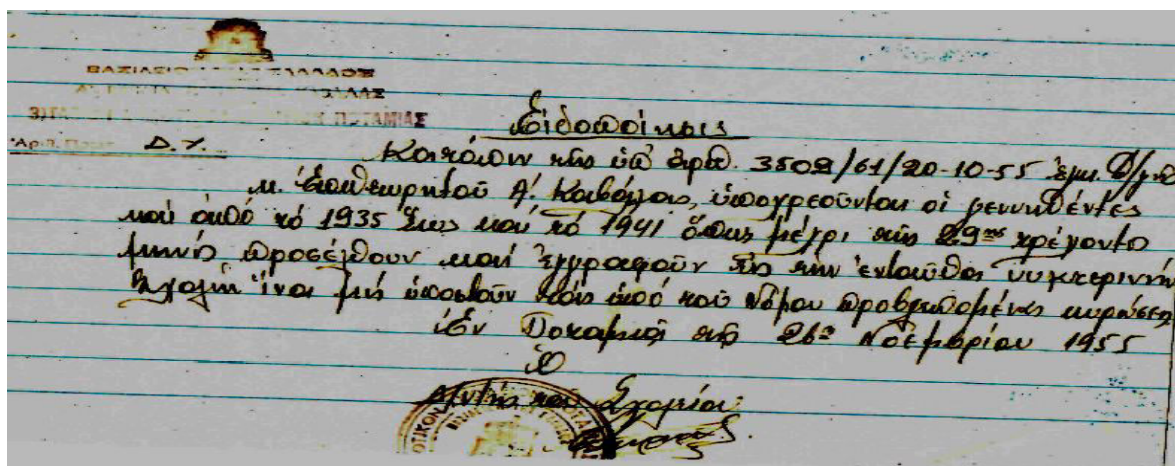 ΒΑΣΙΛΕΙΟΝ ΤΗΣ ΕΛΛΑΔΟΣ
ΚΑΒΑΛΑΣ
ΠΟΤΑΜΙΑΣ
Ἀριθ. Πρωτ. Δ.Υ.
Εἰδοποίησις
Κατόπιν τῆς ὑπ' ἀριθ. 3502/61/20-10-55 ἐγκ. Δ/γῆς
κ. Ἐπιθεωρητοῦ Α΄. Καβάλας, ὑποχρεοῦνται οἱ γεννηθέντες
καί ἀπό τό 1935 ἕως καί τό 1941 ὅπως μέχρι τῆς 29ης τρέχοντο
μηνός προσέλθουν καί ἐγγραφοῦν εἰς τήν ἐνταῦθα νυκτερινήν
Σχολήν ἵνα μή ὑποστοῦν τάς ὑπό τοῦ Νόμου προβλεπομένας κυρώσεις
Ἐν Ποταμιᾷ τῇ 26ῃ Νοεμβρίου 1955
Ὁ
Δ/ντής τοῦ Σχολείου